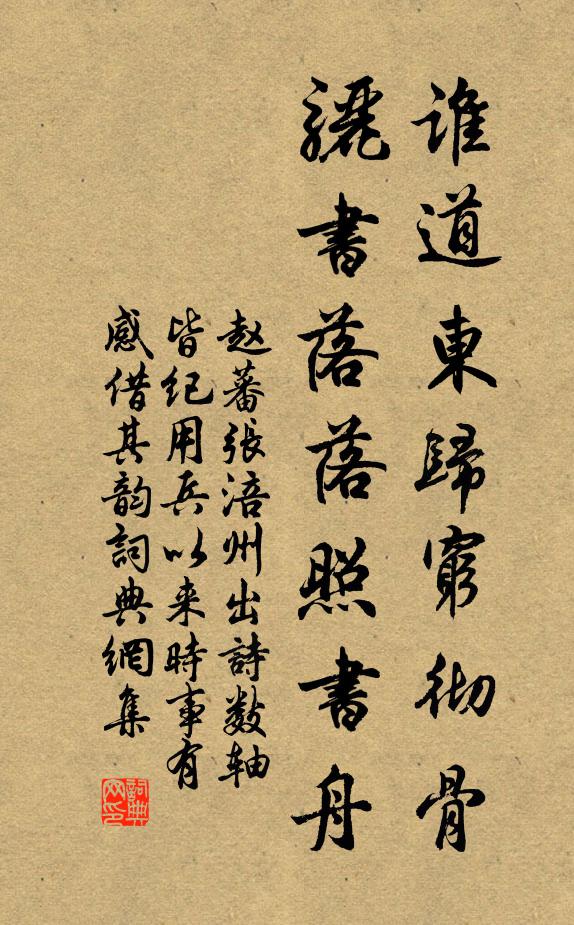 誰道東歸窮彻骨
驪書落落照書舟
赵蕃張涪州出詩数轴
皆纪用兵以来時事有
感借其韵詞典網集
詞典网印